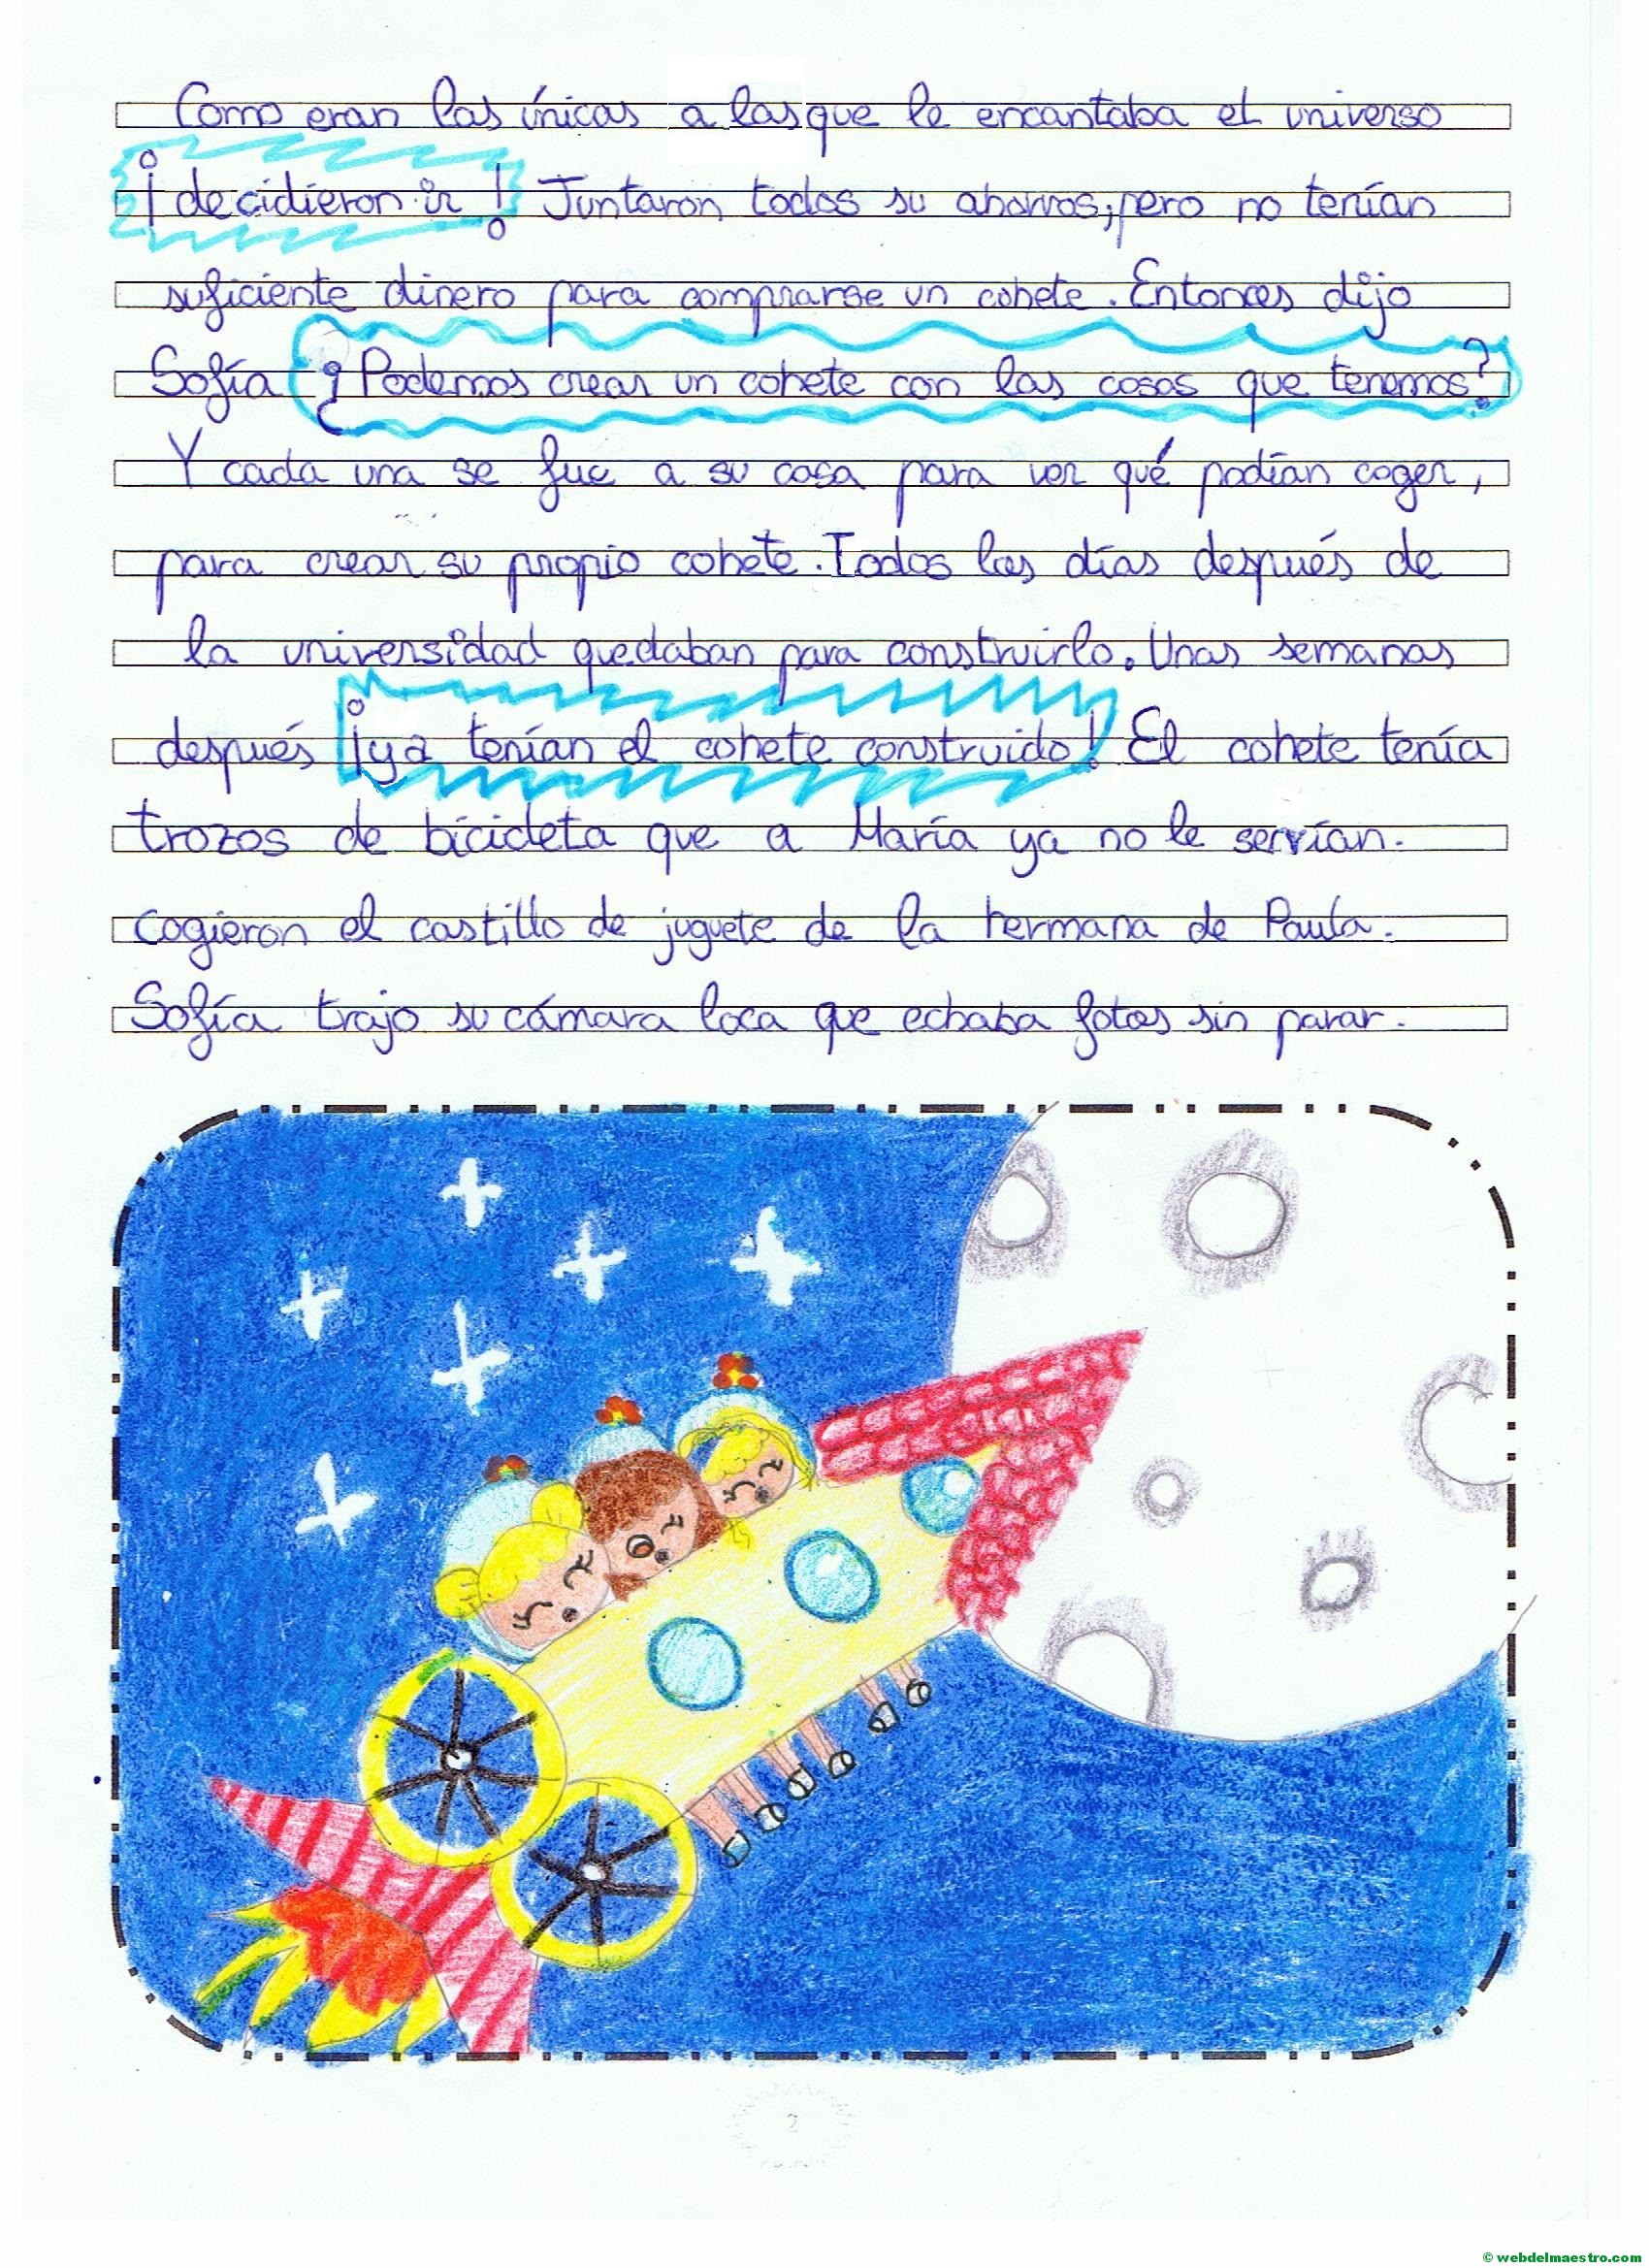 Como eran las únicas a las que le encantaba el universo
¡decidieron ir! Juntaron todos su ahorros; pero no tenían
suficiente dinero para comprarse un cohete. Entonces dijo
Sofía ¿Podemos crear un cohete con las cosas que tenemos?
Y cada una se fue a su casa para ver qué podían coger,
para crear su propio cohete. Todos los días después de
la universidad quedaban para construirlo. Unas semanas
después ¡ya tenían el cohete construido! El cohete tenía
trozos de bicicleta que a María ya no le servían.
Cogieron el castillo de juguete de la hermana de Paula.
Sofía trajo su cámara loca que echaba fotos sin parar.
2
© webdelmaestro.com